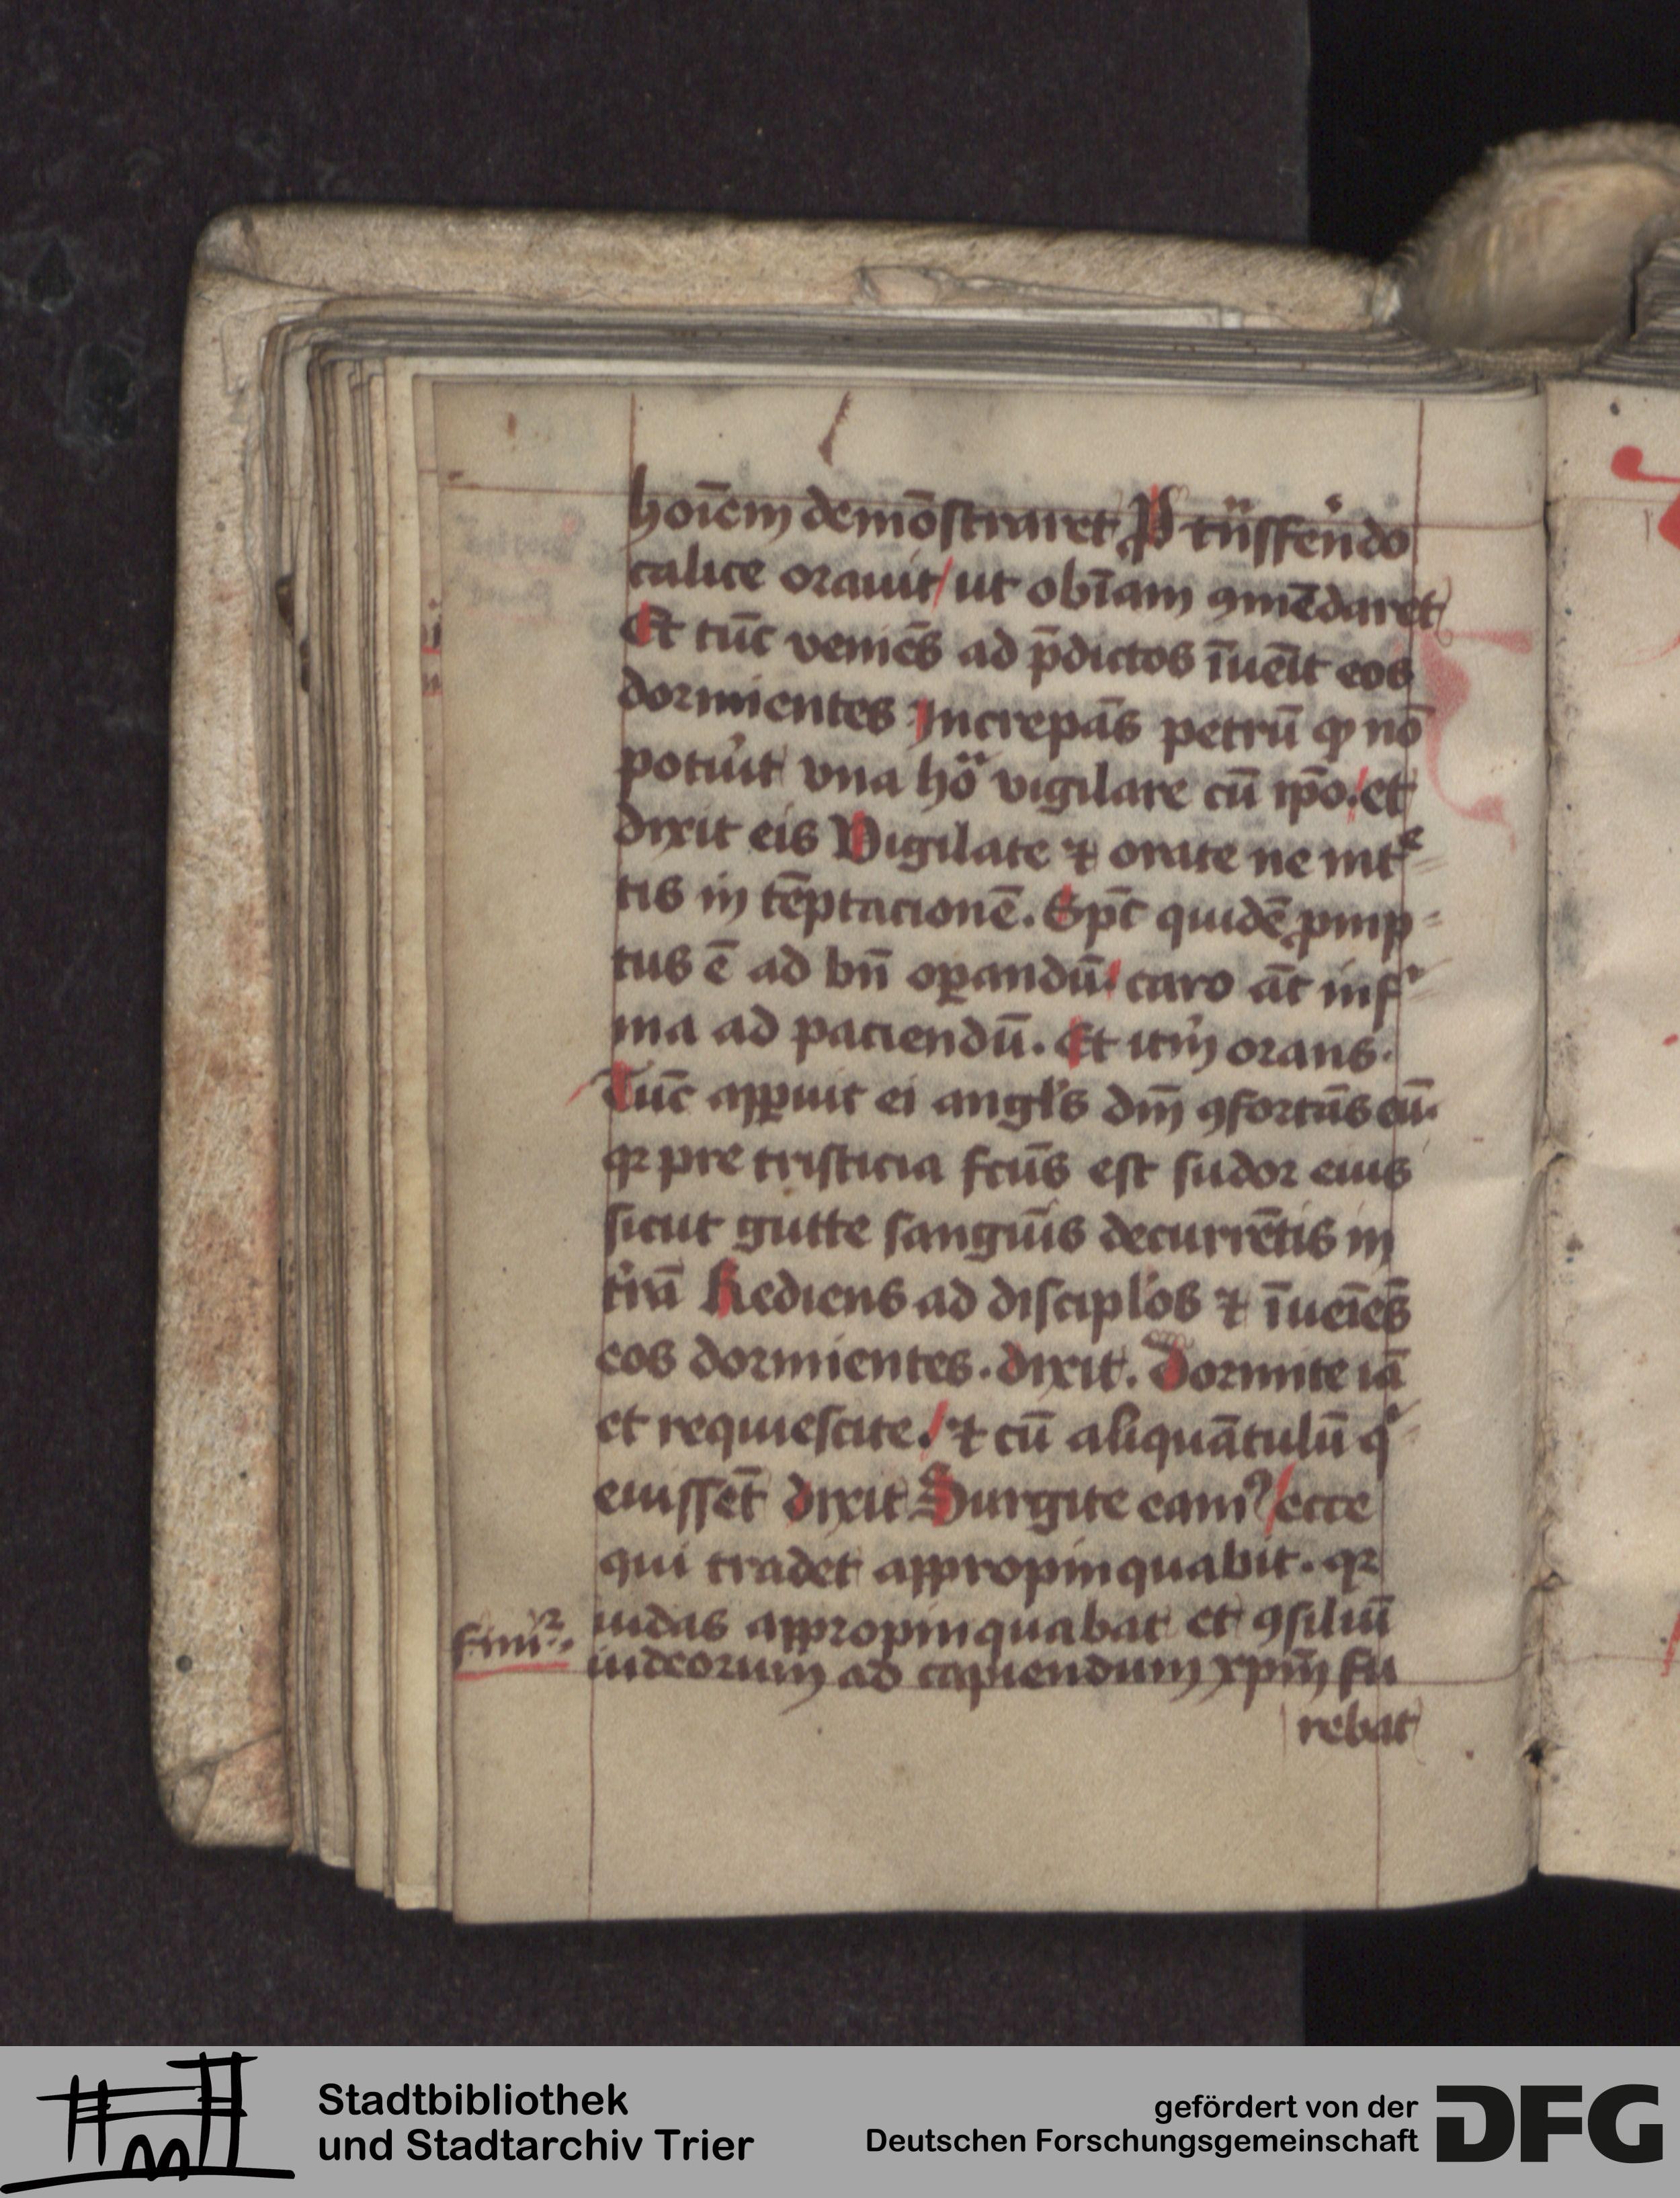 hoīem demōstraret Ꝓ tn̄sferēdo
calice orauit / ut obīam ꝯmēdaret
Et tūc veniēs ad p̄dictos īuēit eos
dormientes Increpās petrū ꝙ nō
potuit vna hoᵃ vigilare cū ip̄o. / et
dixit eis Vigilate ⁊ orate ne intᵉ
tis in tēptacionē. Sp̄c quidē ꝓmp
tus ē ad bn̄ oꝑandū / caro āt infⁱ
ma ad paciendū. Et itm̄ orans.
Tūc apꝑuit ei angl's dm̄ ꝯfortās eū.
qꝛ pre tristicia fcūs est sudor eius
sicut gutte sanguīs decurrētis in
t'rā Rediens ad discipl'os ⁊ īueīēs
eos dormientes. dixit. Dormite iā
et requiescite. / ⁊ cū aliquātulū qⁱ
euissēt dixit Surgite eamꝰ / ecce
qui tradet appropinquabit. qꝛ
iudas appropinquabat et ꝯsiliū
iudeorum ad capiendum xpm̄ fu
rebat
Stadtbibliothek
und Stadtarchiv Trier
gefördert von der
Deutschen Forschungsgemeinschaft
DFG